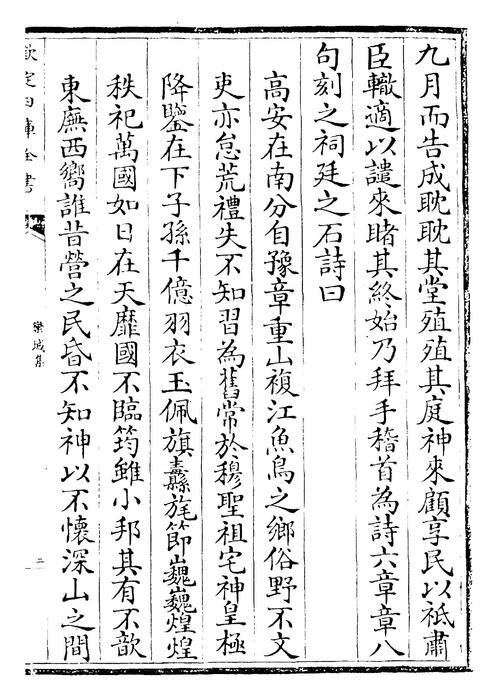 九月而告成耽耽其堂殖殖其庭神來顧享民以祗肅
臣轍適以譴來睹其終始乃拜手稽首為詩六章章八
句刻之祠廷之石詩曰
高安在南分自豫章重山複江魚鳥之鄉俗野不文
吏亦怠荒禮失不知習為舊常於穆聖祖宅神皇極
降鑒在下子孫千億羽衣玉佩旗纛旄節巍巍煌煌
秩祀萬國如日在天靡國不臨筠雖小邦其有不歆
東廡西嚮誰昔營之民昏不知神以不懷深山之間
欽定四庫全書
欒城集
二